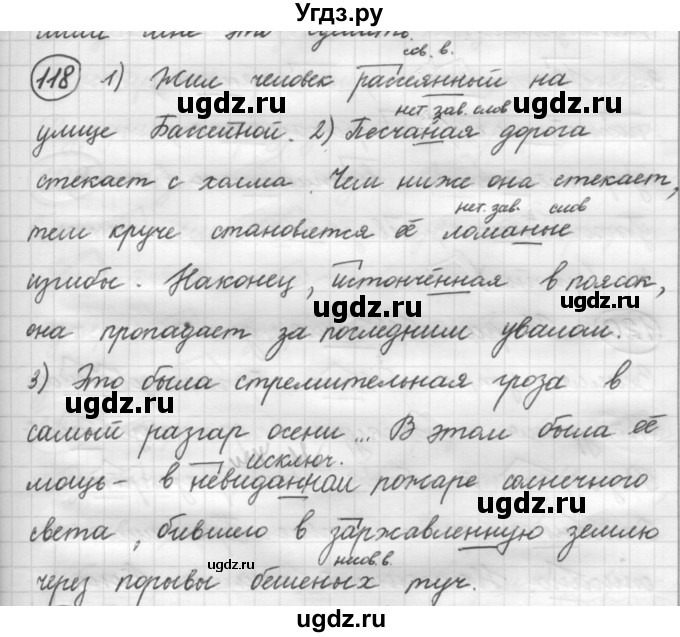 Угдз.ру
мини мне это сделать.
сов. в.
118 1) Жил человек рассеянный на
ugdz.ru ugdz.ru
нет зав. слов
улице Бассейной. 2) Песчаная дорога
стекает с холма. Чем ниже она стекает,
ugdz.ru
нет. зав. слов
тем круче становятся её ломаные
изгибы. Наконец, истончённая в поясок,
ugdz.ru ugdz.ru
она пропадает за последним увалом.
3) Это была стремительная гроза в
ugdz.ru
самый разгар осени... В этом была её
исключ.
мощь – в невиданном пожаре солнечного
ugdz.ru
света, бившего в заржавленную землю
ugdz.ru
несов. в.
через порывы бешеных туч.
ugdz.ru ugdz.ru